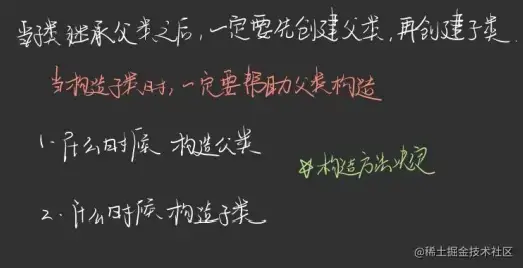 当子类继承父类之后,一定要先创建父类,再创建子类.
当构造子类时,一定要帮助父类构造
1.什么时候构造父类
☆构造方法决定
2.什么时候构造子类
@稀土掘金技术社区